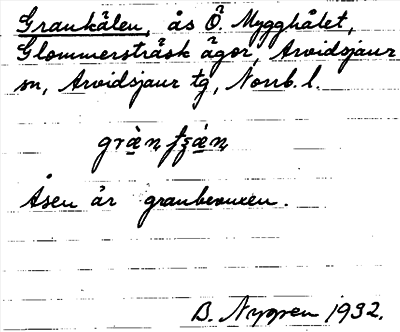 Grankälen, ås Ö. Mygghålet,
Glommersträsk ägor, Arvidsjaur
sn, Arvidsjaur tg, Norrb. l.
Åsen är granbevuxen.
B. Nygren 1932.